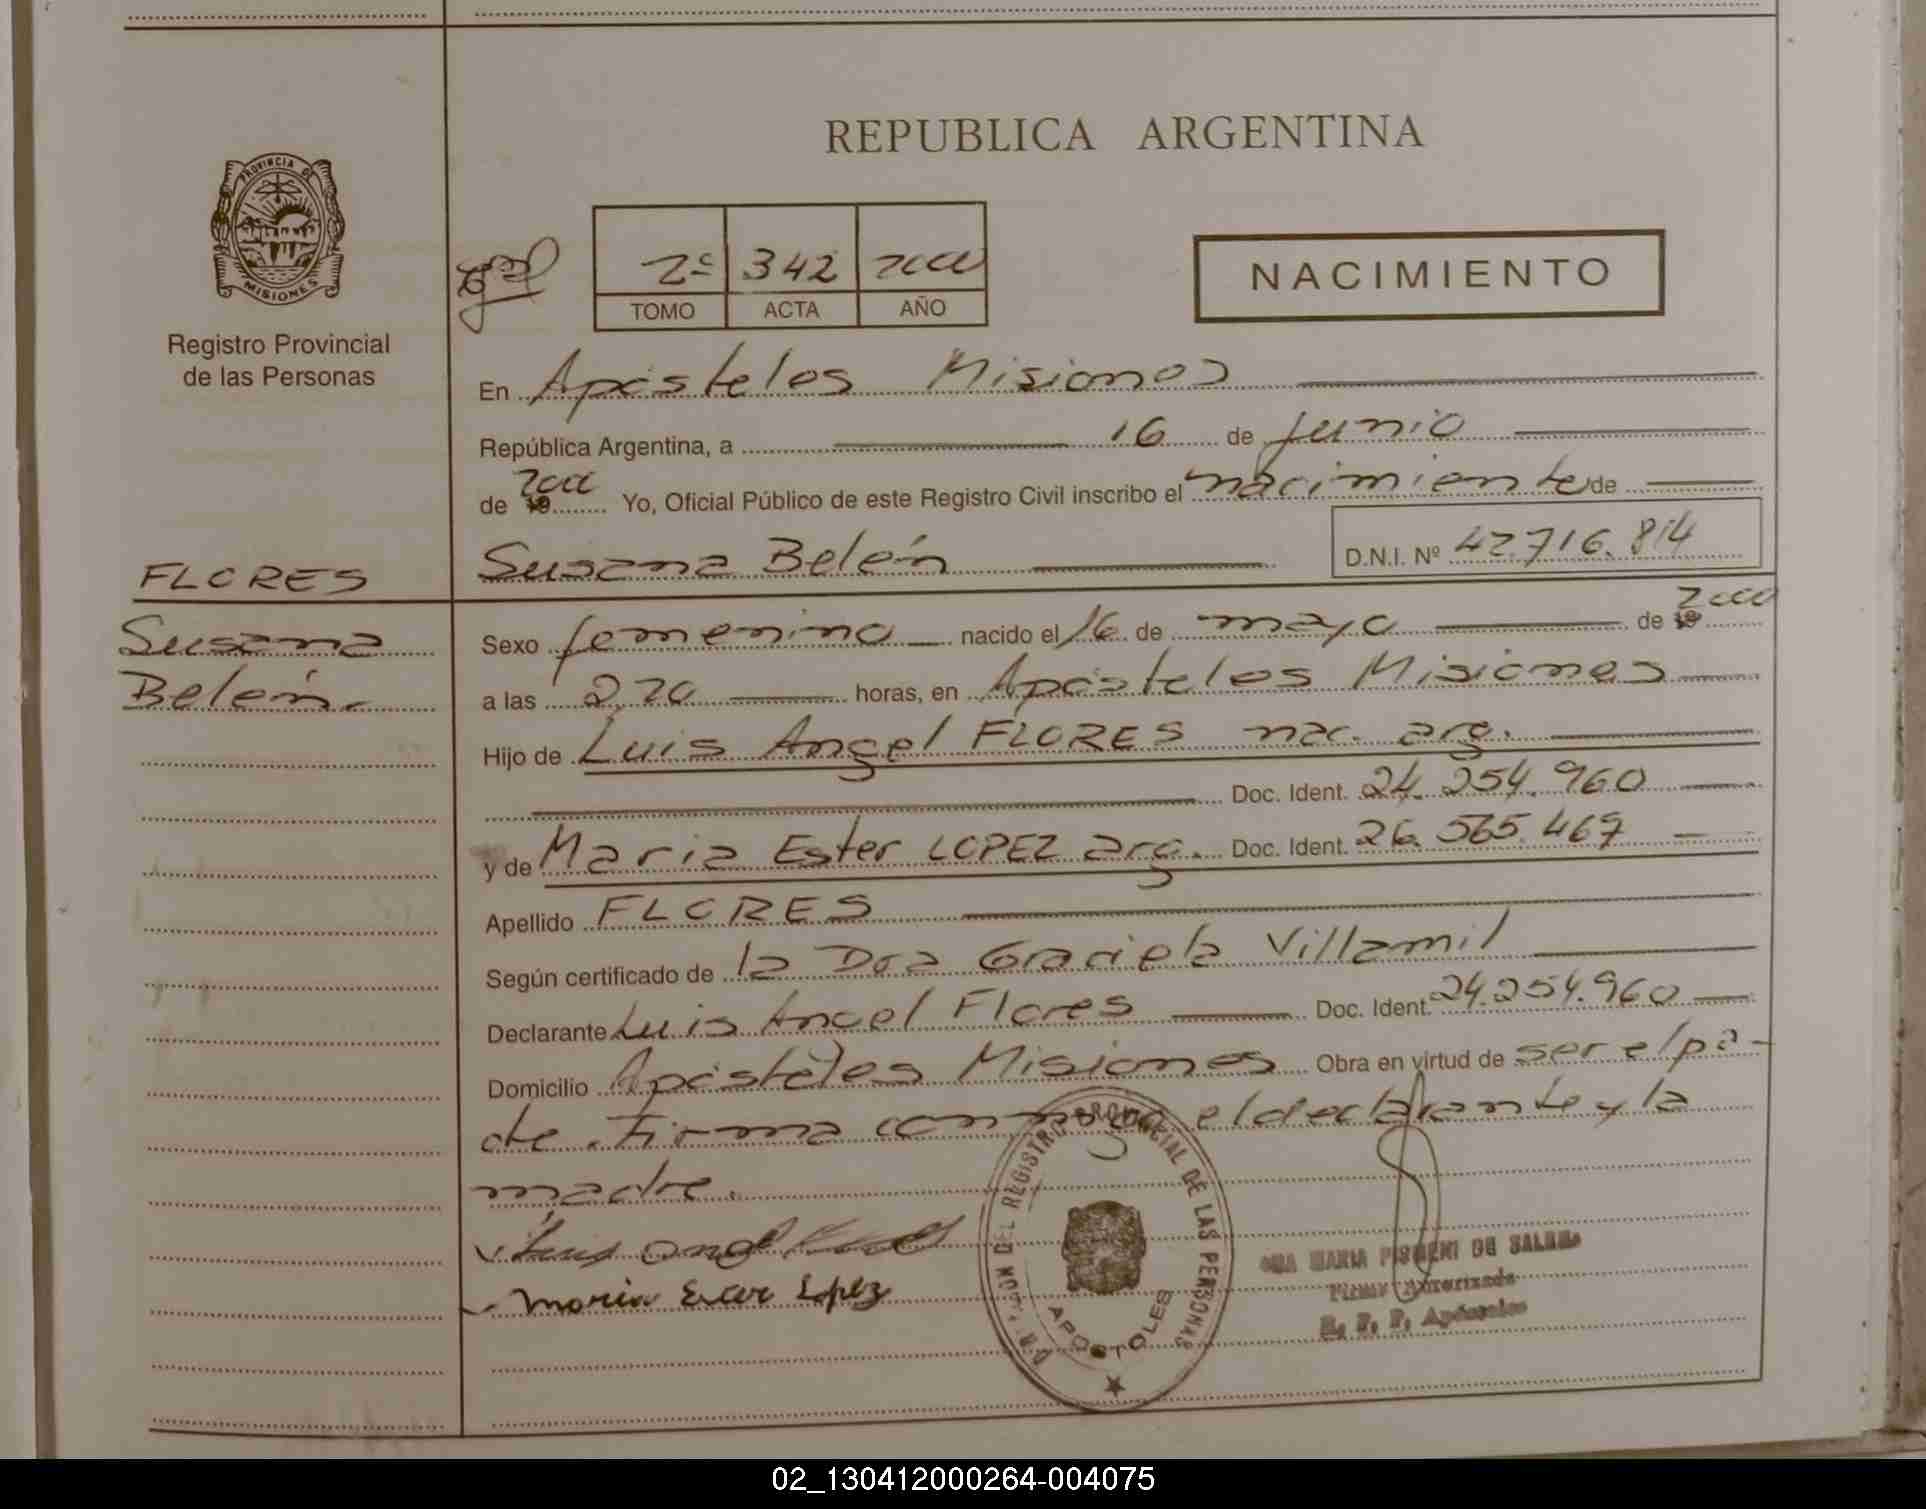 REPUBLICA ARGENTINA
PROVINCIA DE
MISIONES
Registro Provincial
de las Personas
2º 342 2000
TOMO ACTA AÑO
NACIMIENTO
En Apóstoles Misiones
República Argentina, a 16 de junio
de 2000 Yo, Oficial Público de este Registro Civil inscribo el nacimiento de
Susana Belén D.N.I. Nº 42.716.814
FLORES
Susana
Belén.
Sexo femenino nacido el 16 de mayo de 2000
a las 2,20 horas, en Apóstoles Misiones
Hijo de Luis Angel FLORES nac. arg.
Doc. Ident. 24.254.960
y de Maria Ester LOPEZ arg. Doc. Ident. 26.565.467
Apellido FLORES
Según certificado de la Dra Graciela Villamil
Declarante Luis Angel Flores Doc. Ident. 24.254.960
Domicilio Apóstoles Misiones Obra en virtud de ser el pa-
dre. Firma conmigo el declarante y la
madre.
Luis angel
Maria Ester Lopez
DEL REGISTRO PROVINCIAL DE LAS PERSONAS
APOSTOLES
MARIA DE
Firma Autorizada
R. P. P. Apóstoles
02_130412000264-004075